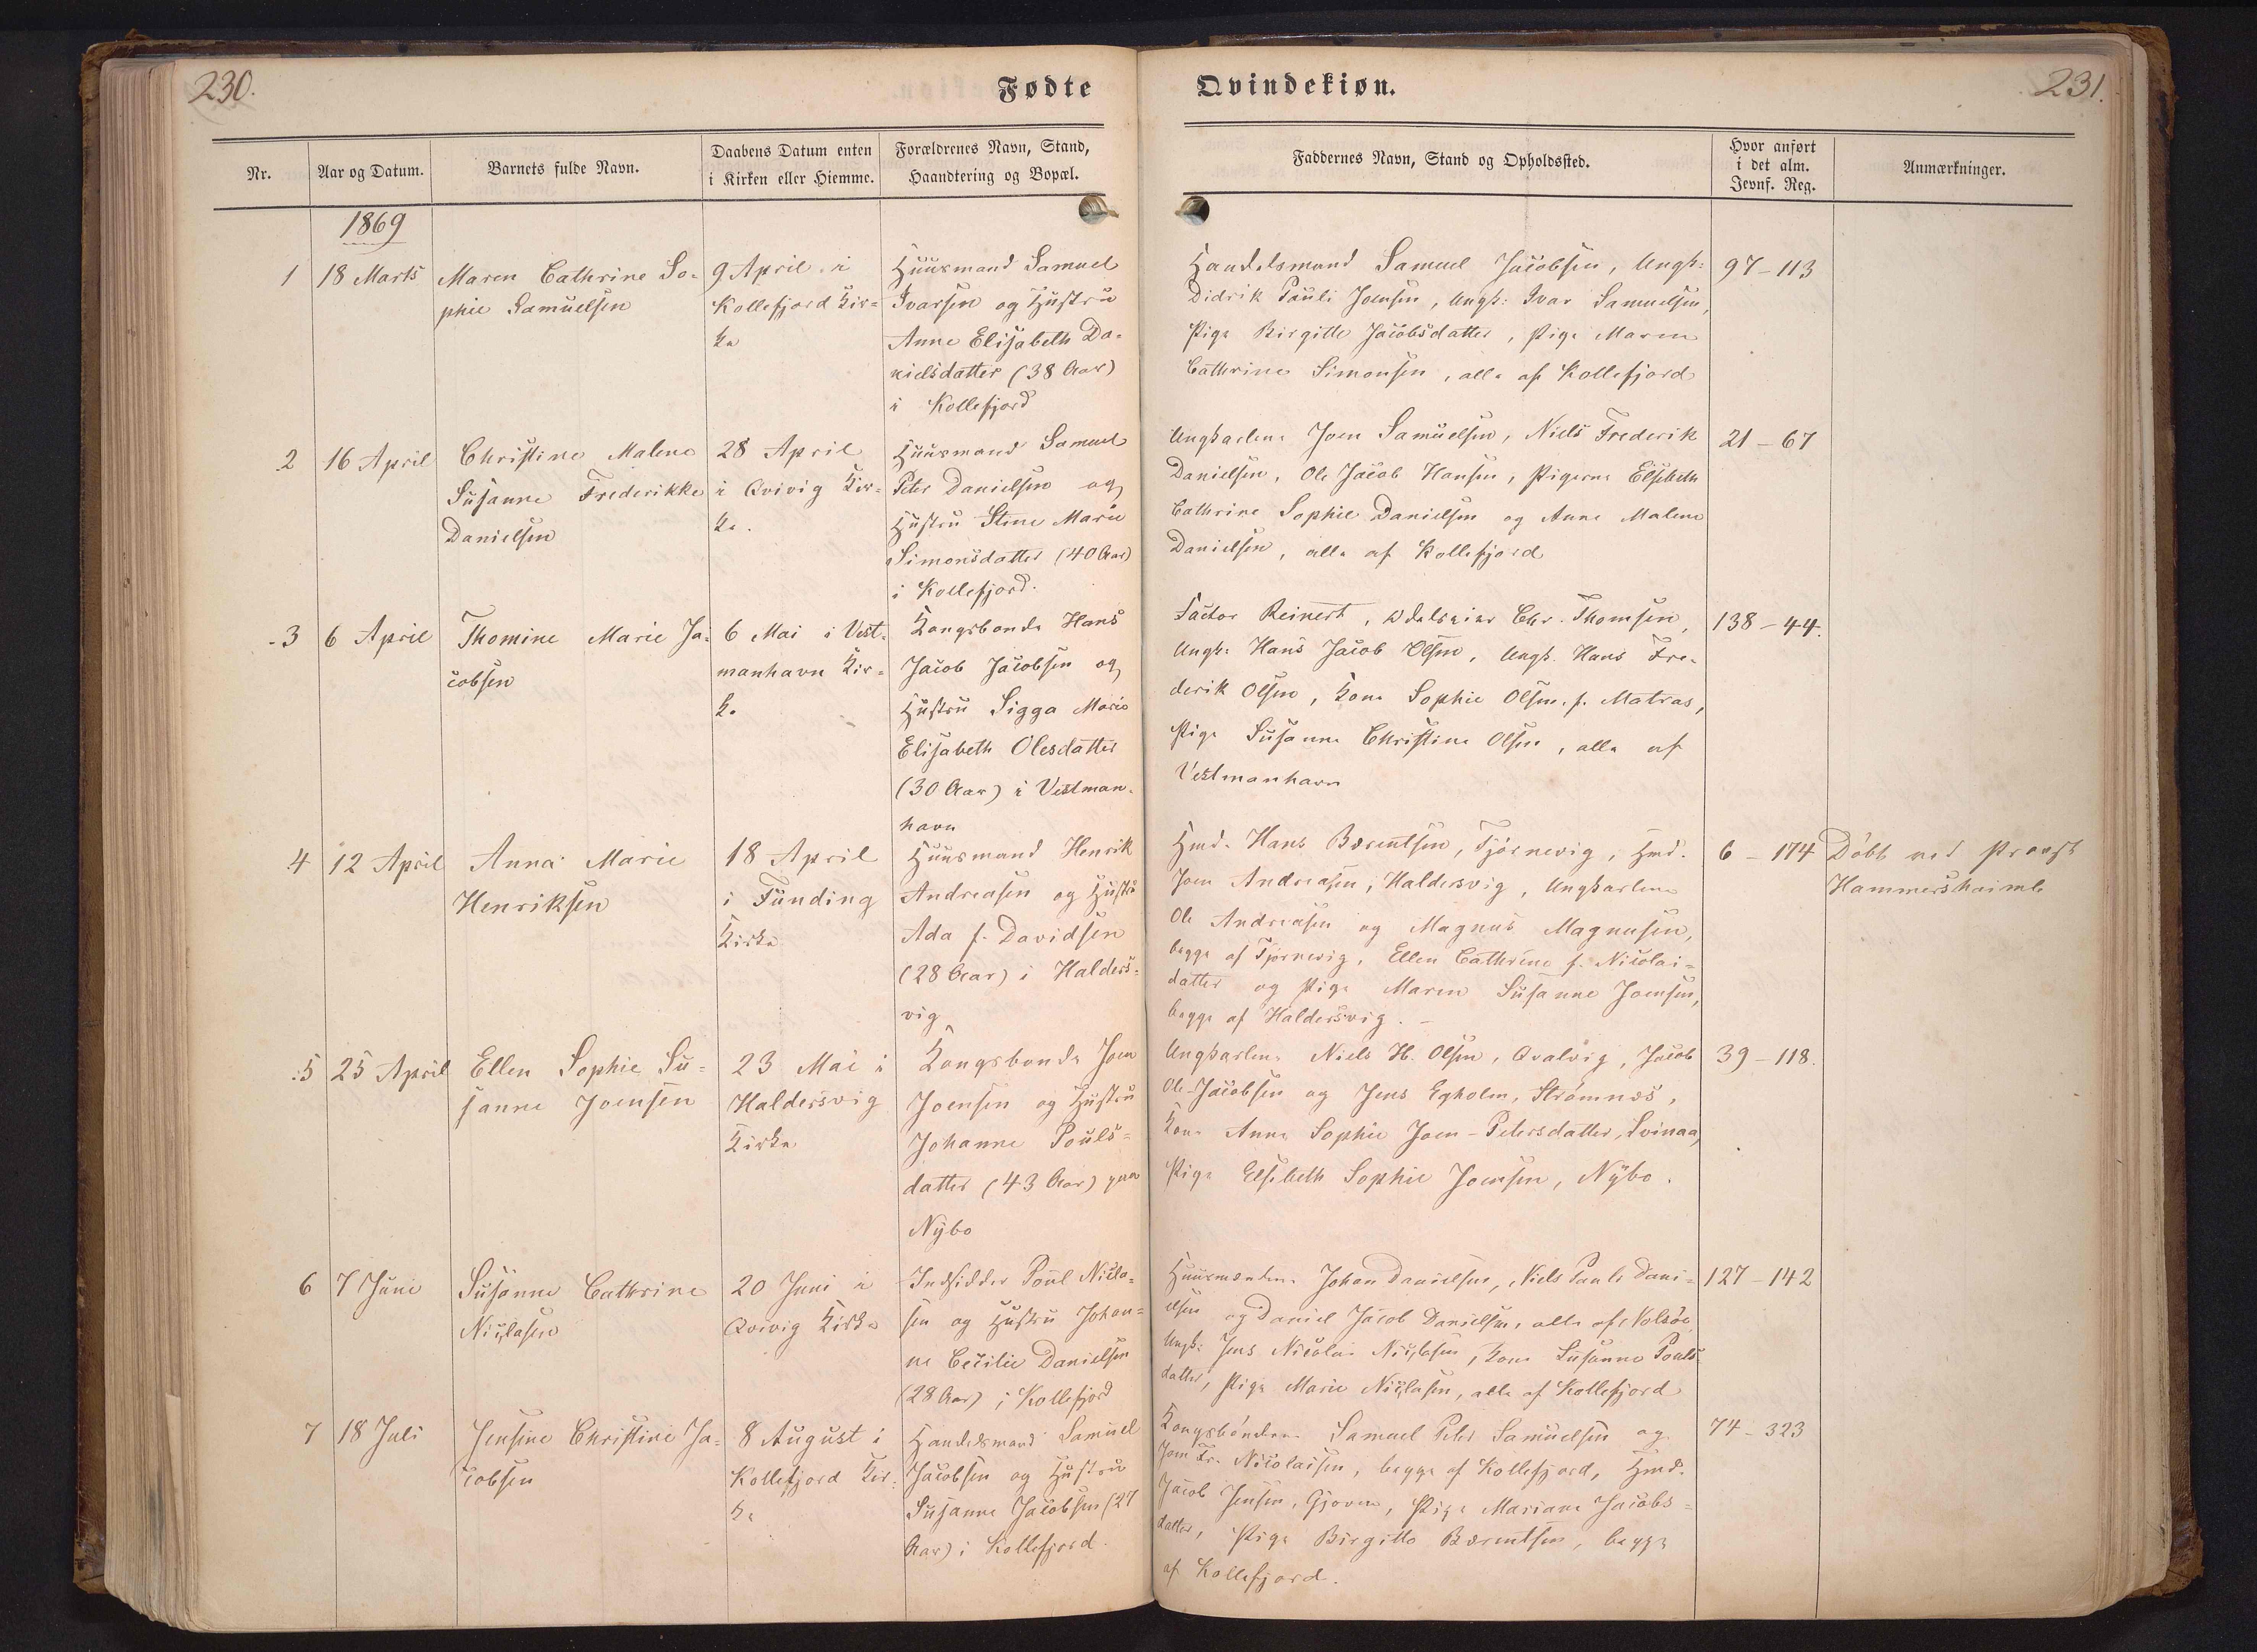 230.
Fødte
Qvindekiøn.
231.
Nr.
Aar og Datum.
Barnets fulde Navn.
Daabens Datum enten
i Kirken eller Hiemme.
Forældrenes Navn, Stand,
Haandtering og Bopæl.
Faddernes Navn, Stand og Opholdssted.
Hvor anført
i det alm.
Jevnf. Reg.
Anmærkninger.
1869
1
18 Marts
Maren Cathrine So-
phie Samuelsen
9 April i
Kollefjord Kir-
ke
Huusmand Samuel
Ivarsen og Hustru
Anne Elisabeth Da-
nielsdatter (38 Aar)
i Kollefjord
Handelsmand Samuel Jacobsen, Ungk:
Didrik Pauli Joensen, Ungk: Ivar Samuelsen,
Pige Birgitte Jacobsdatter, Pige Maren
Cathrine Simonsen, alle af Kollefjord
97-113
2
16 April
Christine Malene
Susanne Frederikke
Danielsen
28 April
i Qvivig Kir-
ke.
Huusmand Samuel
Peter Danielsen og
Hustru Stine Marie
Simonsdatter (40 Aar)
i Kollefjord.
Ungkarlene Joen Samuelsen, Niels Frederik
Danielsen, Ole Jacob Hansen, Pigerne Elsebeth
Cathrine Sophie Danielsen og Anne Malene
Danielsen, alle af Kollefjord
21-67
3
6 April
Thomine Marie Ja-
cobsen
6 Mai i Vest-
manhavn Kir-
ke
Kongsbonde Hans
Jacob Jacobsen og
Hustru Sigga Marie
Elisabeth Olesdatter
(30 Aar) i Vestman-
havn
Factor Reinert, Odelseier Chr. Thomsen,
Ungk: Hans Jacob Olsen, Ungk. Hans Fre-
derik Olsen, Kone Sophie Olsen f. Matras,
Pige Susanne Christine Olsen, alle af
Vestmanhavn
138-44.
4
12 April
Anna Marie
Henriksen
18 April
i Funding
Kirke
Huusmand Henrik
Andreasen og Hustru
Ada f. Davidsen
(28 Aar) i Halders-
vig
Hmd. Hans Bærentsen, Tjørnevig, Hmd.
Joen Andreasen, Haldersvig, Ungkarlene
Ole Andreasen og Magnus Magnusen,
begge af Tjørnevig, Ellen Cathrine f. Nicolai-
datter og Pige Maren Susanne Joensen,
begge af Haldersvig. -
6-174
Døbt ved Provst
Hammershaimb
5
25 April
Ellen Sophie Su-
sanne Joensen
23 Mai i
Haldersvig
Kirke
Kongsbonde Joen
Joensen og Hustru
Johanne Pouls-
datter (43 Aar) paa
Nybo
Ungkarlene Niels H. Olsen, Qvalvig, Jacob
Ole Jacobsen og Jens Egholm, Strømnæs,
Kone Anne Sophie Joen-Petersdatter, Svinaa,
Pige Elsebeth Sophie Joensen, Nybo.
39-118.
6
7 Juni
Susanne Cathrine
Niclasen
20 Juni i
Qvivig Kirke
Indsidder Poul Nicla-
sen og Hustru Johan-
ne Cecilie Danielsen
(28 Aar) i Kollefjord
Huusmændene Johan Danielsen, Niels Pauli Dani-
elsen og Daniel Jacob Danielsen, alle af Nolsøe,
Ungk: Jens Nicolai Niclasen, Kone Susanne Pouls-
datter, Pige Marie Niclasen, alle af Kollefjord
127-142
7
18 Juli
Jensine Christine Ja-
cobsen
8 August i
Kollefjord Kir-
ke
Handelsmand Samuel
Jacobsen og Hustru
Susanne Jacobsen (27
Aar) i Kollefjord.
Kongsbønderne Samuel Peter Samuelsen og
Joen Fr. Nicolaisen, begge af Kollefjord, Hmd.
Jacob Jensen, Gjoven, Pige Mariane Jacobs-
datter, Pige Birgitte Bærentsen, begge
af Kollefjord.
74-323